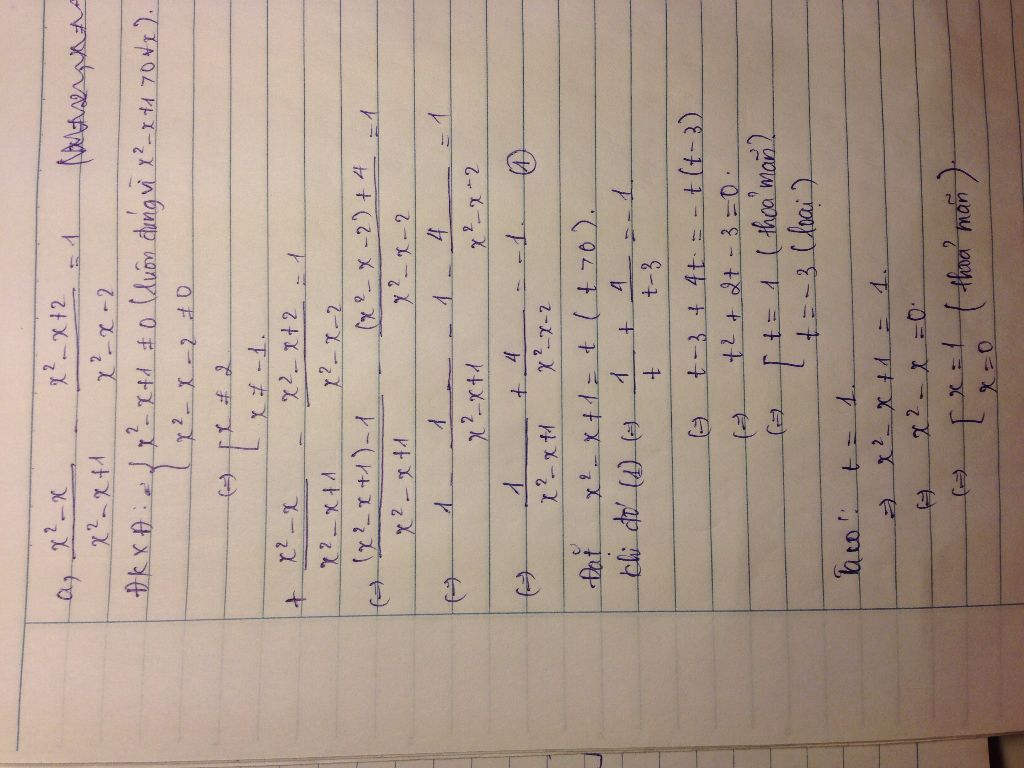 a, (x² - x)/(x² - x + 1) - (x² - x + 2)/(x² - x - 2) = 1
ĐKXĐ: { x² - x + 1 ≠ 0 (luôn đúng vì x² - x + 1 > 0 ∀x).
x² - x - 2 ≠ 0
(=) [ x ≠ 2
x ≠ -1.
+ (x² - x)/(x² - x + 1) - (x² - x + 2)/(x² - x - 2) = 1
(=) ((x² - x + 1) - 1)/(x² - x + 1) - ((x² - x - 2) + 4)/(x² - x - 2) = 1
(=) 1 - 1/(x² - x + 1) - 1 - 4/(x² - x - 2) = 1
(=) 1/(x² - x + 1) + 4/(x² - x - 2) = -1. (1)
Đặt x² - x + 1 = t (t > 0).
Khi đó (1) (=) 1/t + 4/(t - 3) = -1.
(=) t - 3 + 4t = -t(t - 3)
(=) t² + 2t - 3 = 0.
(=) [ t = 1 (thoả mãn).
t = -3 (loại)
Ta có: t = 1.
=> x² - x + 1 = 1.
(=) x² - x = 0.
(=) [ x = 1 (thoả mãn).
x = 0